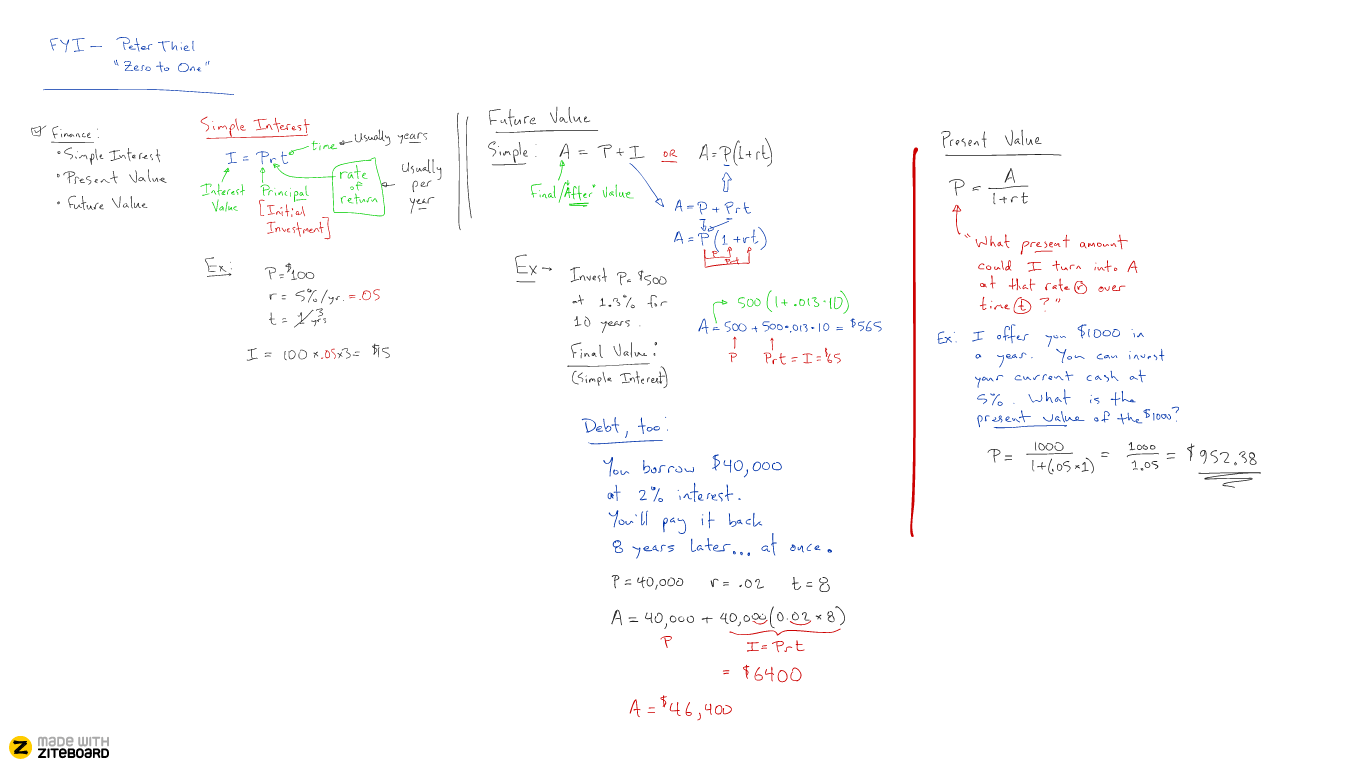 FYI — Peter Thiel
"Zero to One"
Finance:
• Simple Interest
• Present Value
• Future Value
Simple Interest
I = Prt
time
Usually years
Interest
Value
Principal
[Initial
Investment]
rate
of
return
Usually
per
year
Ex:
P=$100
r = 5%/yr. = .05
t = 3 yrs
I = 100 × .05 × 3 = $15
Future Value
Simple: A = P + I OR A = P(1+rt)
Final/"After" Value
A = P + Prt
A = P(1 + rt)
P Prt
Ex →
Invest P= $500
at 1.3% for
10 years.
Final Value:
(Simple Interest)
500(1+.013·10)
A = 500 + 500·.013·10 = $565
P Prt = I = $65
Debt, too:
You borrow $40,000
at 2% interest.
You'll pay it back
8 years later... at once.
P = 40,000 r = .02 t = 8
A = 40,000 + 40,000(0.02 × 8)
P
I = Prt
= $6400
A = $46,400
Present Value
P = A / 1+rt
"What present amount
could I turn into A
at that rate r over
time t ?"
Ex: I offer you $1000 in
a year. You can invest
your current cash at
5%. What is the
present value of the $1000?
P = 1000 / 1+(.05×1) = 1000 / 1.05 = $952.38
MADE WITH
ZITEBOARD